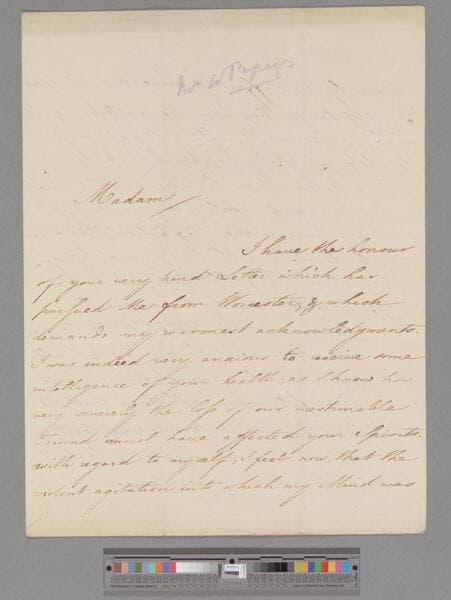 Mr W Pepys
Madam
I have the honour
of your very kind Letter which has
pursued Me from Worcester, & which
demands my warmest acknowledgments.
I was indeed very anxious to receive some
intelligence of your health, as I knew how
very severely the loss of our inestimable
Friend must have affected your Spirits.
with regard to myself, I feel now, that the
violent agitation into which my Mind was